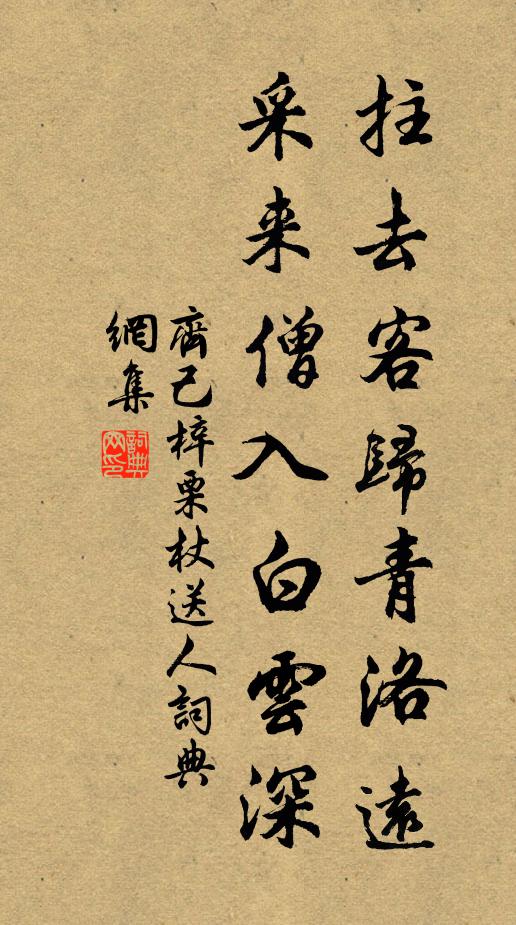 拄去客歸青洛遠
采来僧入白雲深
齊己梓栗杖送人詞典
網集
詞典网印